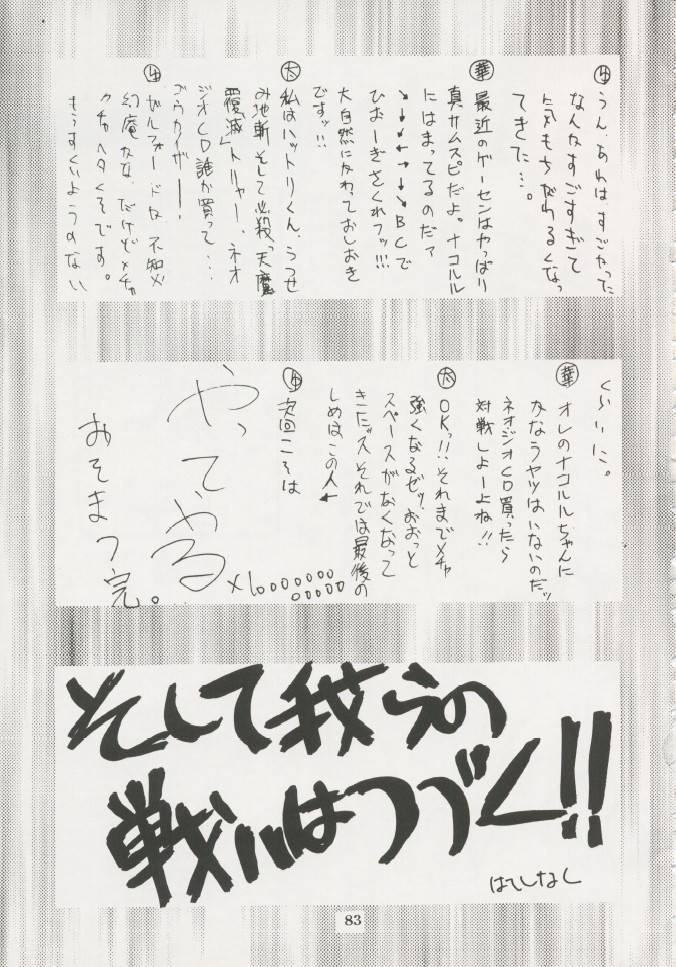 うん、あれは、すごかった
なんかすごすぎて
気もちがわるくなっ
てきた…。
華
最近のゲーセンはやっぱり
真サムスピだよ。ナコルル
にはまってるのだァ
↘↓↙←→↓↘BCで
ひおーぎさくれフッ!!!
大自然にかわっておしおき
ですッ!!
太
私はハットリくん、うつせ
み地斬そして必殺っ天魔
覆滅」トリャー、ネオ
ジオCD誰か買って…
ゴウカイザー──!
ガルフォードな不知火
幻庵なな、だけどメチャ
クチャヘタくそです。
もうすくいようのない
くらいに。
華
オレのナコルルちゃんに
かなうヤツはいないのだッ
ネオジオCD買ったら
対戦しよーよね!!
太
OKっ!!それまでメチャ
強くなるゼッ、おおっと
スペースがなくなって
きたっスそれでは最後の
しめはこの人←
次回こそは
やってやる
×10000000
00000
おそまつ完。
そして我らの
戦いはつづく!!
はてしなし
83